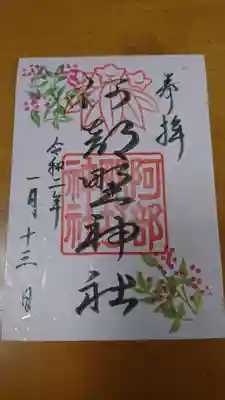 奉拝
阿部野神社
令和二年
一月十三日
阿部
野
神社